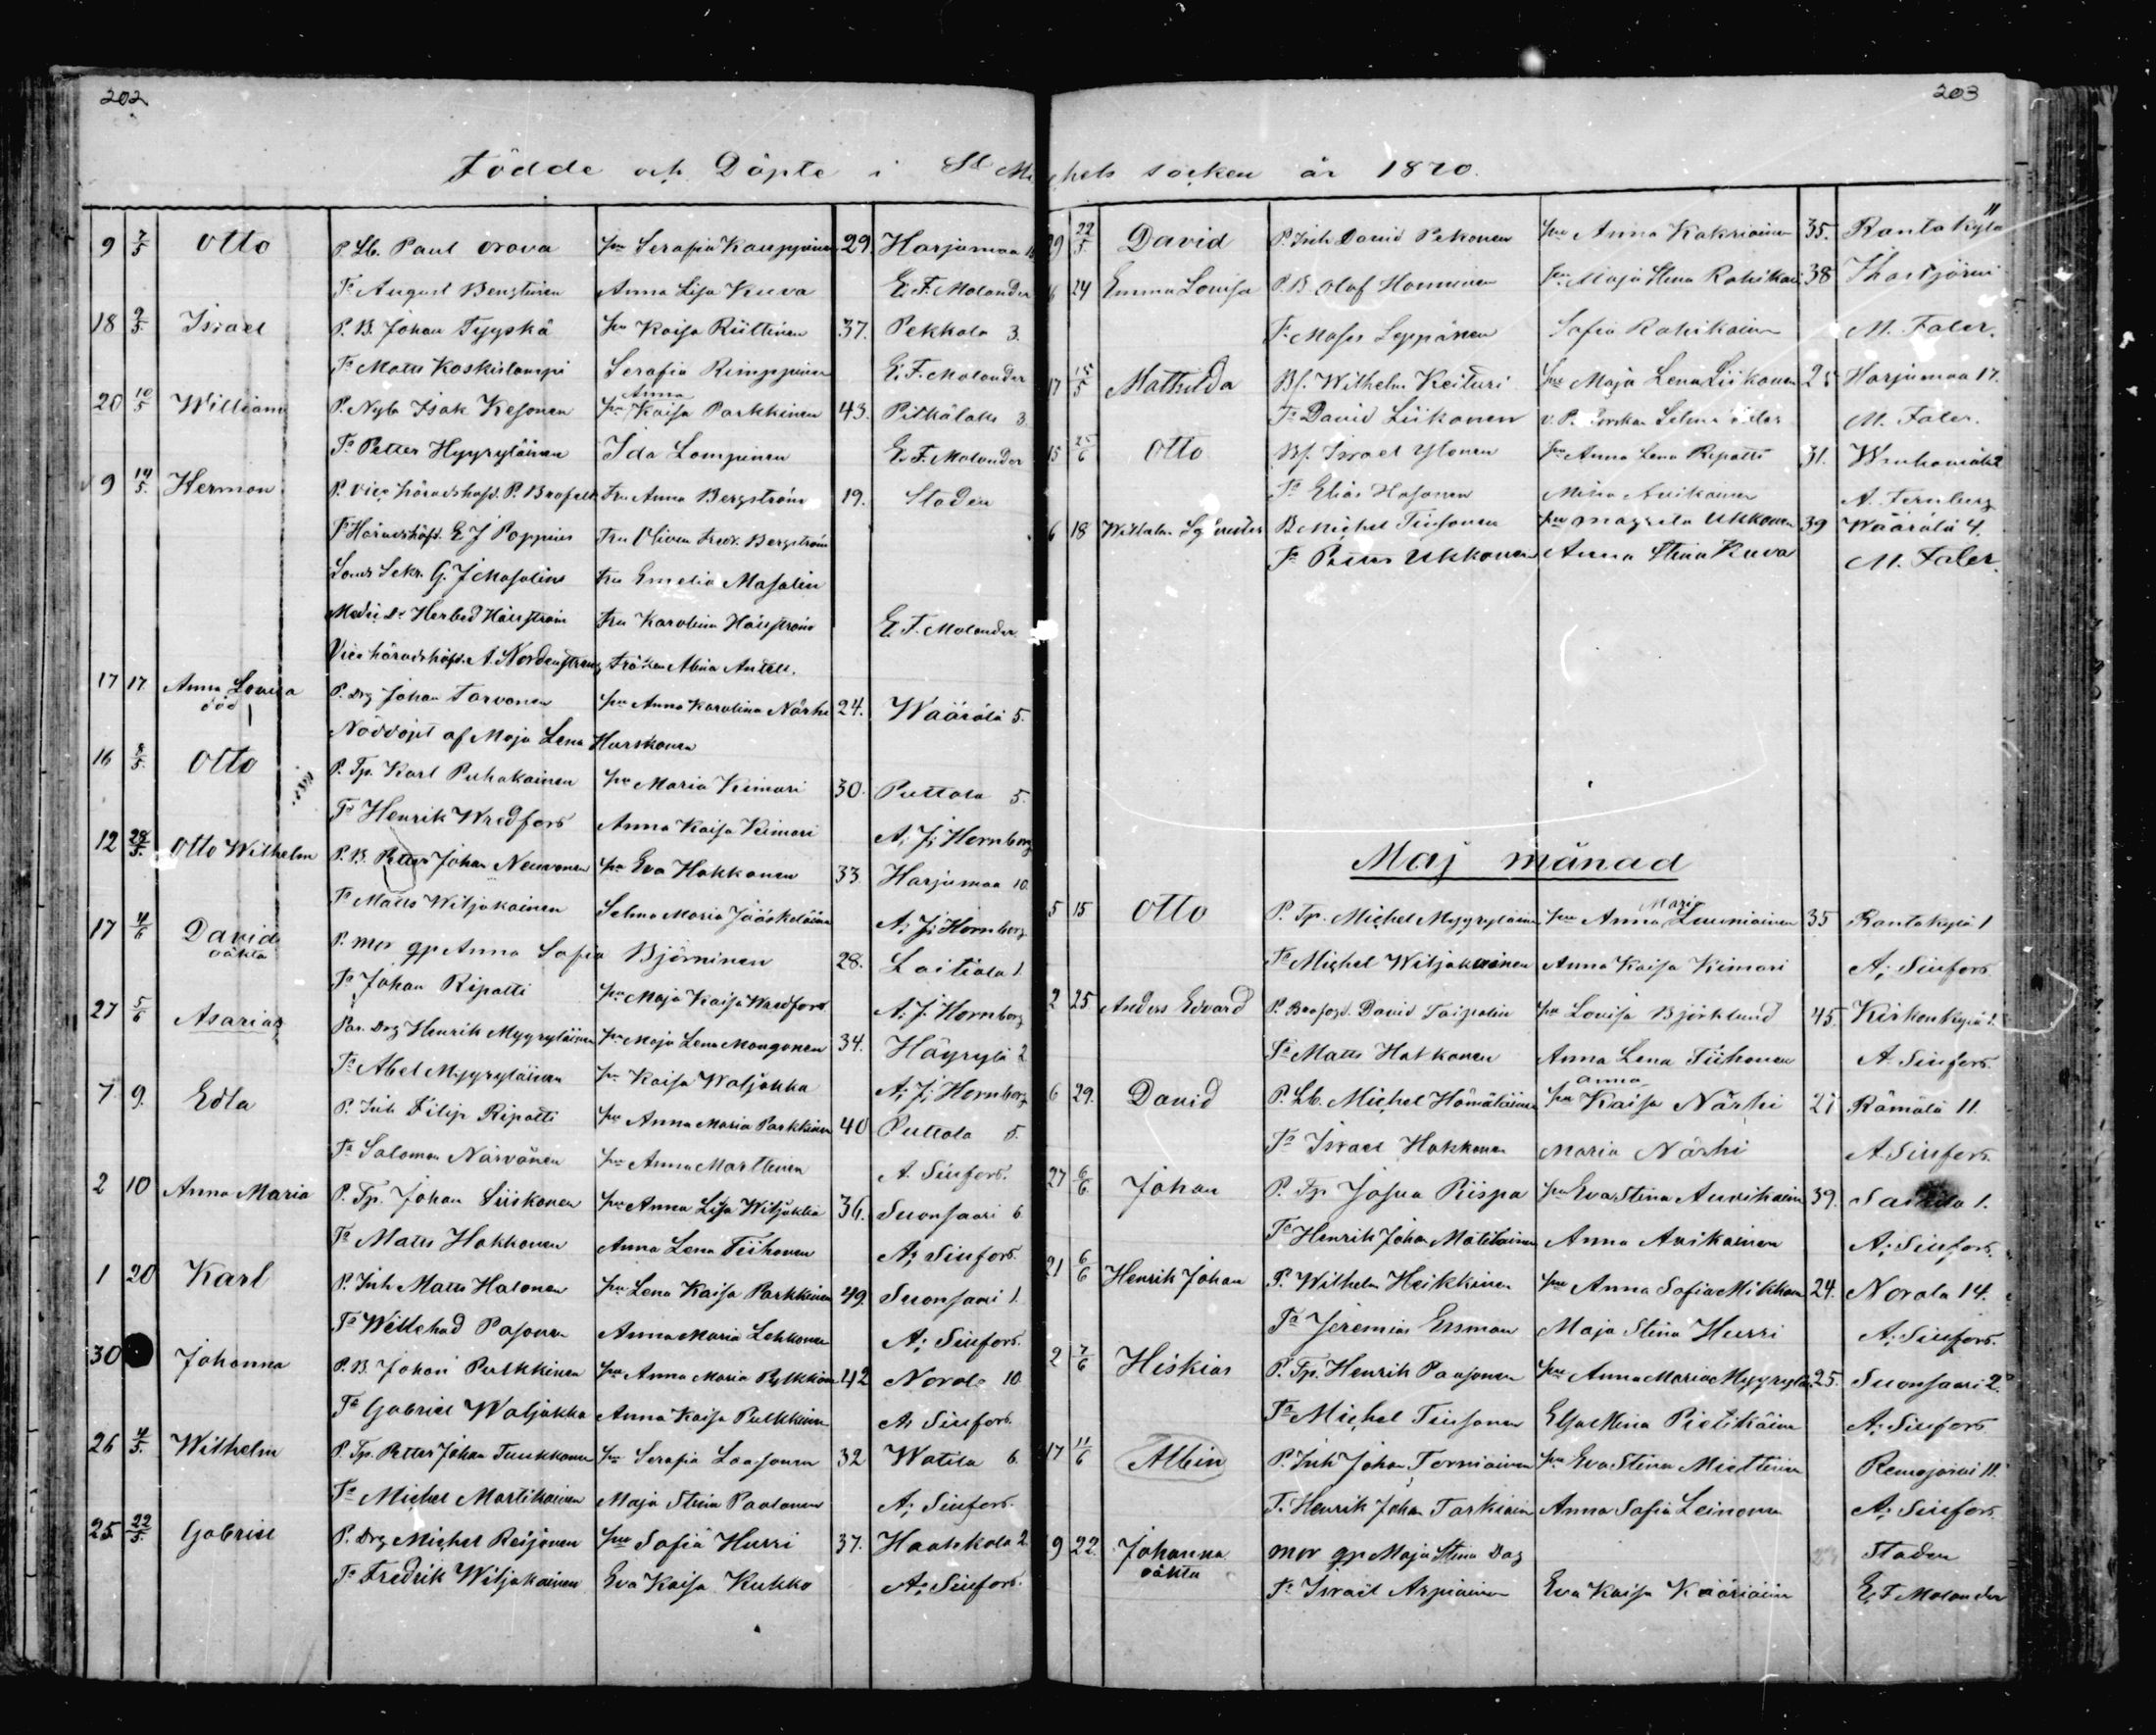 202
203
Födde och Döpte i St Michels socken år 1870.
9 7/5 Otto P. Lb. Paul Orava hu Serafia Kauppinen 29. Harjumaa
Fr August Bengtinen Anna Lisa Kuva E. F. Molander
18 9/5 Israel P. B. Johan Tyyskä hu Kaisa Riittinen 37. Pekkola 3.
Fr Matts Koskilampi Serafia Rimppinen E. F. Molander
Anna
20 10/5 William P. Nyb. Isak Kesonen hu Kaisa Parkkinen 43. Pitkälaks 3
Fr Petter Hyyryläinen Ida Lampinen E. F. Molander
9 14/5 Herman P. Vice häradshöfd. P. Fru Anna Bergström 19. Staden
Fr Häradshöfd. E J Poppius Fru Oliva Fredr. Bergström
Lands Sekr. G. J Masalins Fru Emelia Masalin
Medic Dr Herbed Hällström Fru Karolina Hällström E. F. Molander
Vice häradshöfd. A. Nordenstreng Fröken Alina Antell.
17 17 Anna Lovisa P. Drg Johan Tarvonen hu Anna Karolina Närhi 24. Wäärälä 5.
död
Nöddöpt af Maja Lena Hurskonen
16 8/5 Otto P. Tp. Karl Puhakainen hu Maria Kimari 30. Puttola 5.
Fr Henrik Wredfors Anna Kaisa Kimari A. J. Hornborg
12 28/5 Otto Wilhelm P. B. Petter Johan Neuvonen hu Eva Hokkanen 33 Harjumaa 10
Fr Matts Wiljakainen Selma Maria Jääskeläinen A. J. Hornborg
17 4/6 David P. mor qp Anna Sofia Björninen 28. Laitiala 1.
oäkta
Fr Johan Ripatti hu Maja Kaisa Wredfors A. J. Hornborg
27 5/6 Asarias Par. Drg Henrik Myyryläinen hu Maja Lena Mongonen 34. Häyrylä 2
Fr Abel Myyryläinen hu Kaisa Waljakka A. J. Hornborg
7 9. Edla P. Inh Filip Ripatti hu Anna Maria Parkkinen 40 Puttola 5.
Fr Salomon Närvänen hu Anna Marttinen A. Sinfors.
2 10 Anna Maria P. Tp. Johan Siiskonen hu Anna Lisa Wiljakka 36. Suonsaari 6
Fr Matts Hokkanen Anna Lena Tiihonen A. Sinfors.
1 20 Karl P. Inh Matts Halonen hu Lena Kaisa Parkkinen 49. Suonsaari 1.
Fr Willehad Pasonen Anna Maria Lehkonen A. Sinfors.
30 Johanna P. B. Johan Pulkkinen hu Anna Maria Pulkkinen 42 Norola 10
Fr Gabriel Waljakka Anna Kaisa Pulkkinen A. Sinfors.
26 4/5 Wilhelm P. Tp. Petter Johan Tuukkanen hu Serafia Laasonen 32 Watila 6.
Fr Michel Martikainen Maja Stina Paalanen A. Sinfors.
25 22/5 Gabriel P. Drg Michel Reijonen hu Sofia Hurri 37. Haahkala 2
Fr Fredrik Wiljakainen Eva Kaisa Kukko A. Sinfors.
29 22/5 David P. Inh David Pekonen hu Anna Kakriainen 35. Rantakylä 11
6 24 Emma Lovisa P. B. Olof Hanninen hu Maja Stina Rahikain 38 Ihastjärvi
Fr Moses Leppänen Sofia Rahikainen M. Faler.
17 15/5 Mathilda Bf. Wilhelm Keituri hu Maja Lena Liikanen 25 Harjumaa 17.
Fr David Liikanen Selma M. Faler.
15 25/6 Otto Bf. Israel Ylonen hu Anna Lena Ripatti 31. 2
Fr Elias Hasonen Mina Auikainen A. Fernberg
6 18 Wilhelm B Michel Tiusanen hu Magreta Ukkonen 39 Wäärälä 4.
Fr Petter Ukkonen Anna Stina Kuva M. Faler.
Maj månad
Maria
5 15 Otto P. Tp. Michel Myyryläinen hu Anna Launiainen 35 Rantakylä 1
Fr Michel Wiljakainen Anna Kaisa Kimari A. Sinfors
2 25 Anders Edvard P. David Taipalin hu Lovisa Björklund 45. Kirkonkylä 1.
Fr Matts Hokkanen Anna Lena Tiihonen A. Sinfors.
Anna
6 29. David P. Lb. Michel Hämäläinen hu Kaisa Närhi 27 Rämälä 11.
Fr Israel Hokkanen Maria Närhi A. Sinfors.
27 6/6 Johan P. Tp. Josua Piispa hu Eva Stina Auvikainen 39. 1.
Fr Henrik Johan Matilainen Anna Auikainen A. Sinfors.
21 6/6 Henrik Johan P. Wilhelm Heikkinen hu Anna Sofia Mikkonen 24. Norola 14.
Fr Jeremias Ersman Maja Stina Hurri A. Sinfors.
2 7/6 Hiskias P. Tp. Henrik Paasonen hu Anna Maria Myyryläi 25. Suonsaari 2.
Fr Michel Tiusanen Elsa Mina Pietikäinen A. Sinfors.
17 11/6 Albin P. Inh Johan Torniainen hu Eva Stina Miettinen Remojärvi 11.
Fr Henrik Johan Tarkiain Anna Sofia Leinonen A. Sinfors.
9 22. Johanna mor qp Maja Stina Dag Staden
oäkta
Fr Israel Arpiainen Eva Kaisa Kääriäinen E. F. Molander